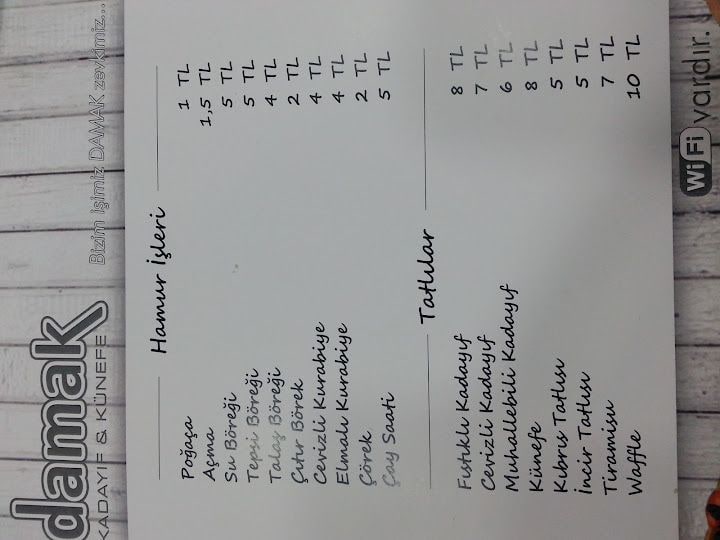 damak
KADAYIF & KÜNEFE
Bizim işimiz DAMAK zevkimiz...
Hamur İşleri
Poğaça 1 TL
Açma 1,5 TL
Su Böreği 5 TL
Tepsi Böreği 5 TL
Talaş Böreği 4 TL
Çıtır Börek 2 TL
Cevizli Kurabiye 4 TL
Elmalı Kurabiye 4 TL
Çörek 2 TL
Çay Saati 5 TL
Tatlılar
Fıstıklı Kadayıf 8 TL
Cevizli Kadayıf 7 TL
Muhallebili Kadayıf 6 TL
Künefe 8 TL
Kıbrıs Tatlısı 5 TL
İncir Tatlısı 5 TL
Tiramisu 7 TL
Waffle 10 TL
WiFi vardır.